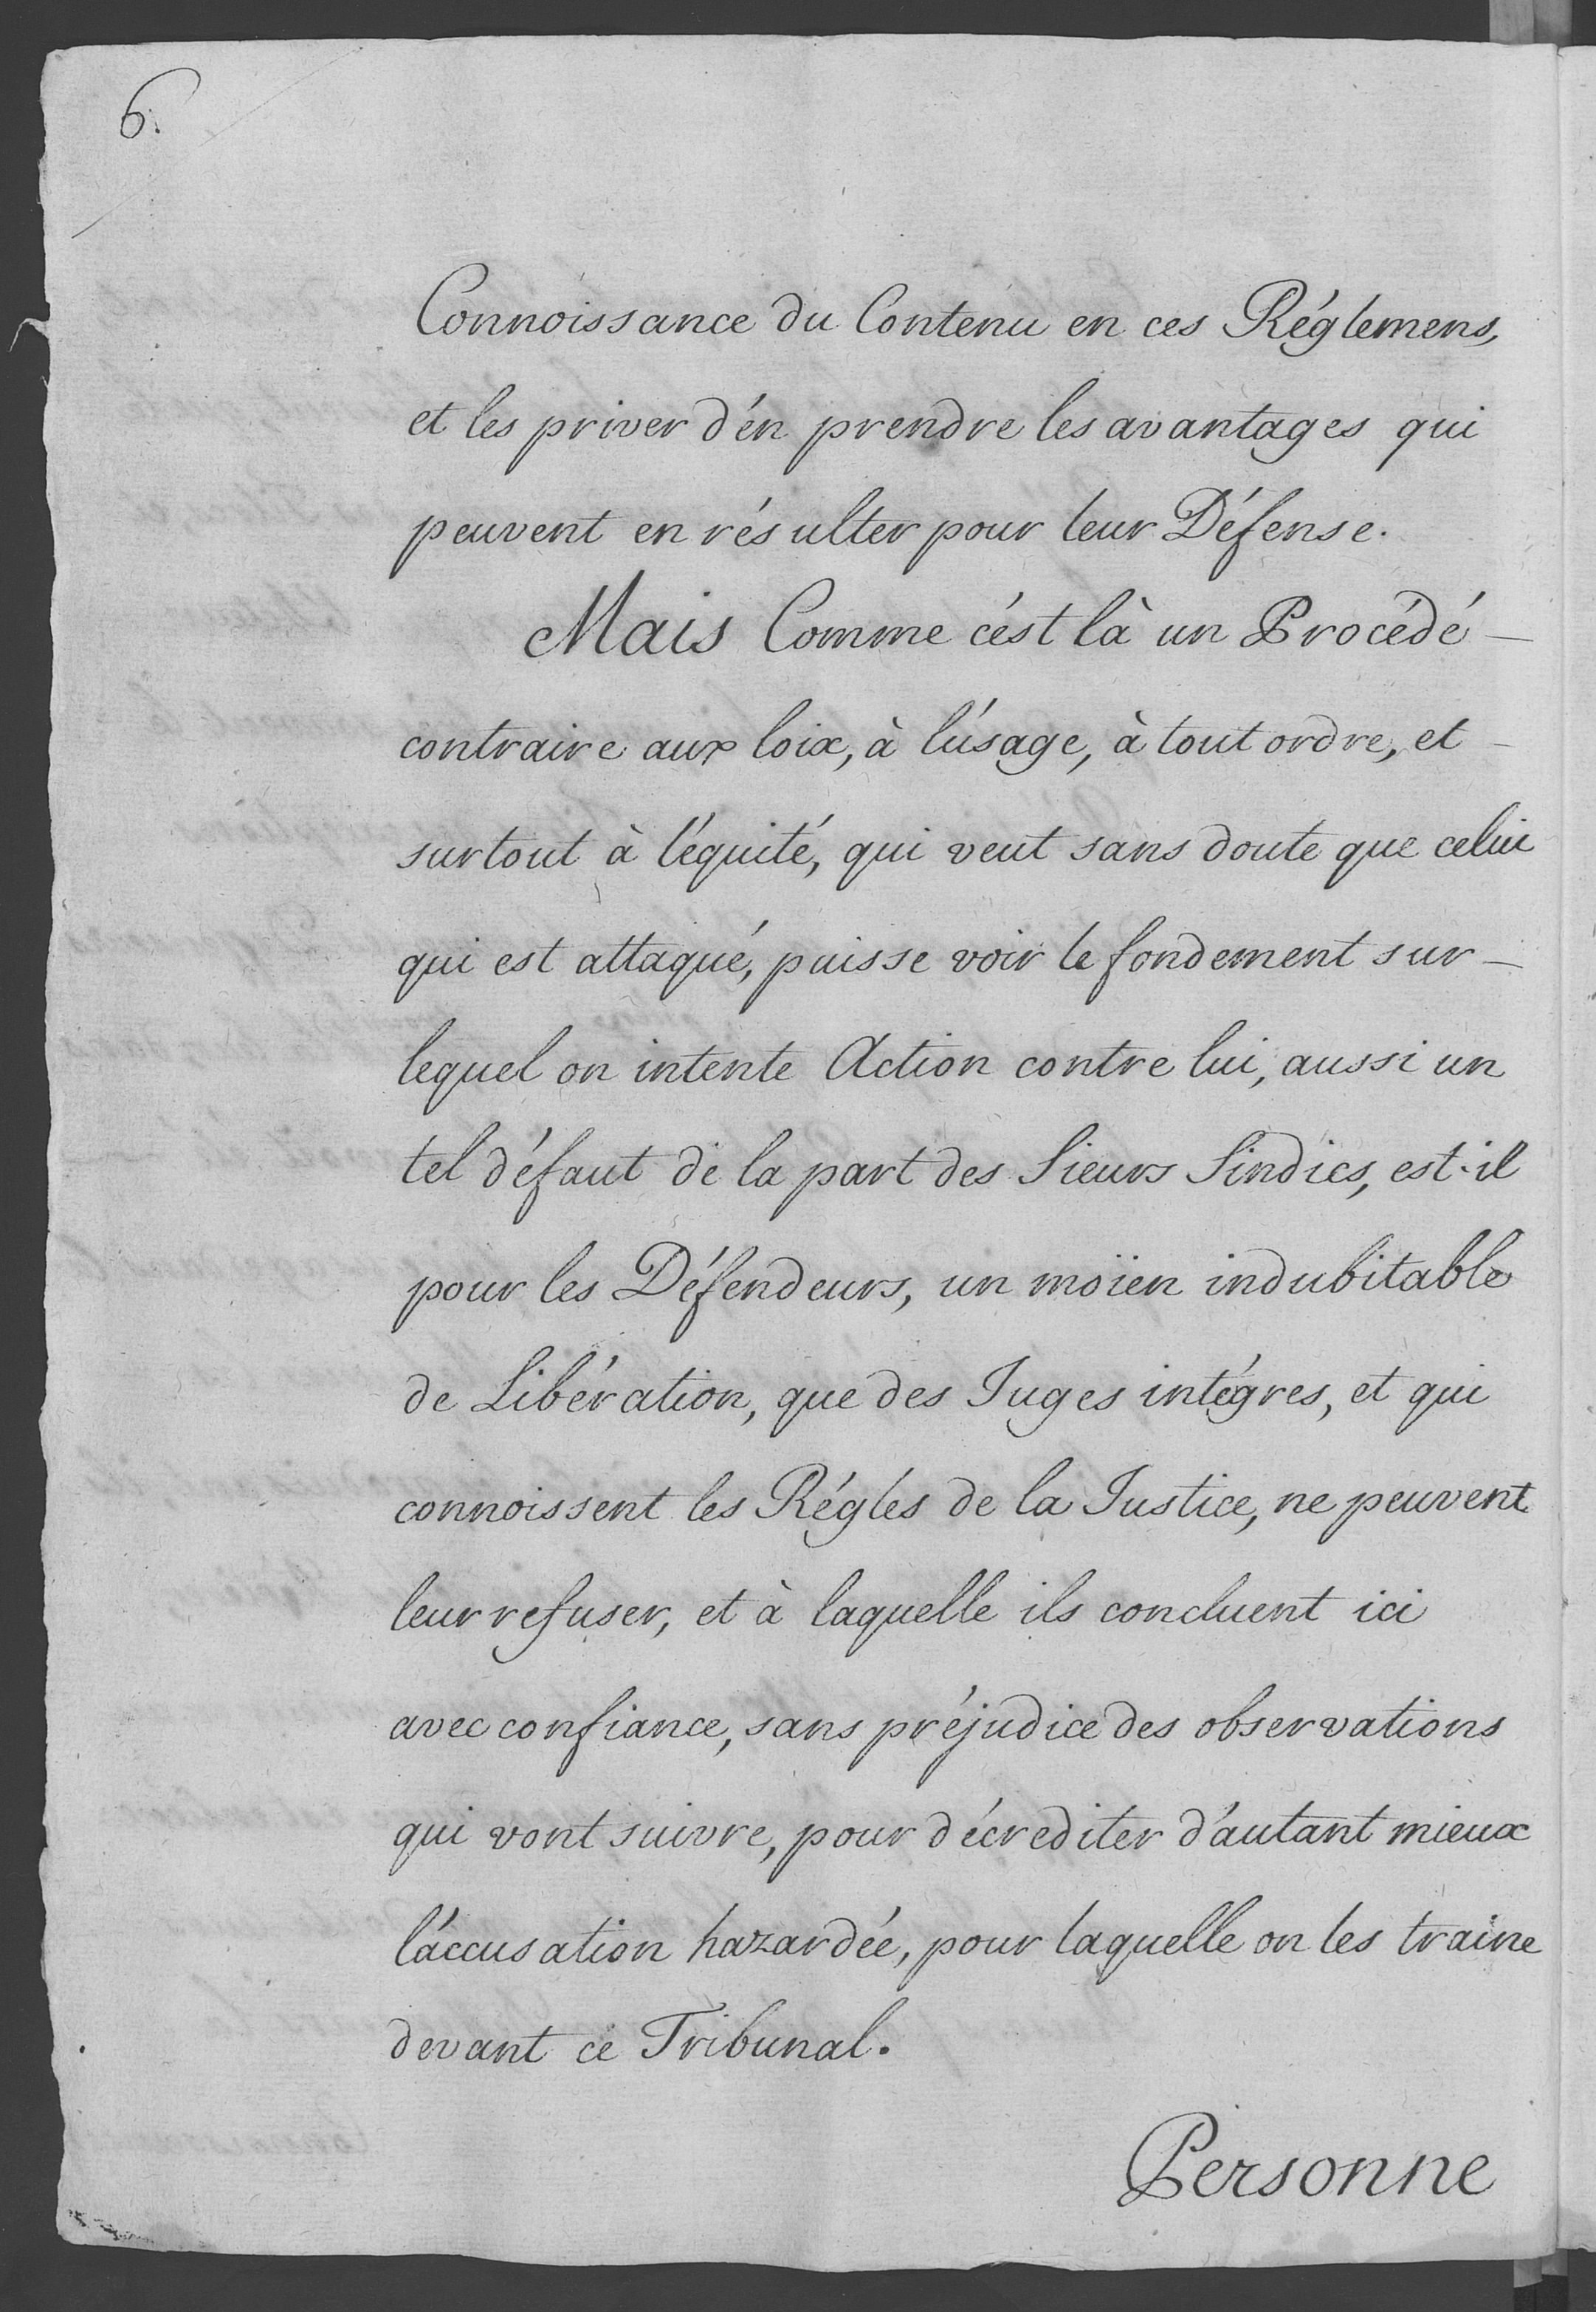 6.
Connoissance du Contenu en ces Réglemens,
et les priver d'én prendre les avantages qui
peuvent en résulter pour leur Défense.
Mais Comme c'ést là un Procédé —
contraire aux loix, à l'úsage, à tout ordre, et —
surtout à l'équité, qui veut sans doute que celui
qui est attaqué, puisse voir le fondement sur —
lequel on intente Action contre lui, aussi un
tel défaut de la part des Sieurs Sindics, est-il
pour les Défendeurs, un moïen indubitable
de Libération, que des Juges intégres, et qui
connoissent les Régles de la Justice, ne peuvent
leur refuser, et à laquelle ils concluent ici
avec confiance, sans préjudice des observations
qui vont suivre, pour décrediter d'áutant mieux
l'áccusation hazardée, pour laquelle on les traine
devant ce Tribunal.
Personne